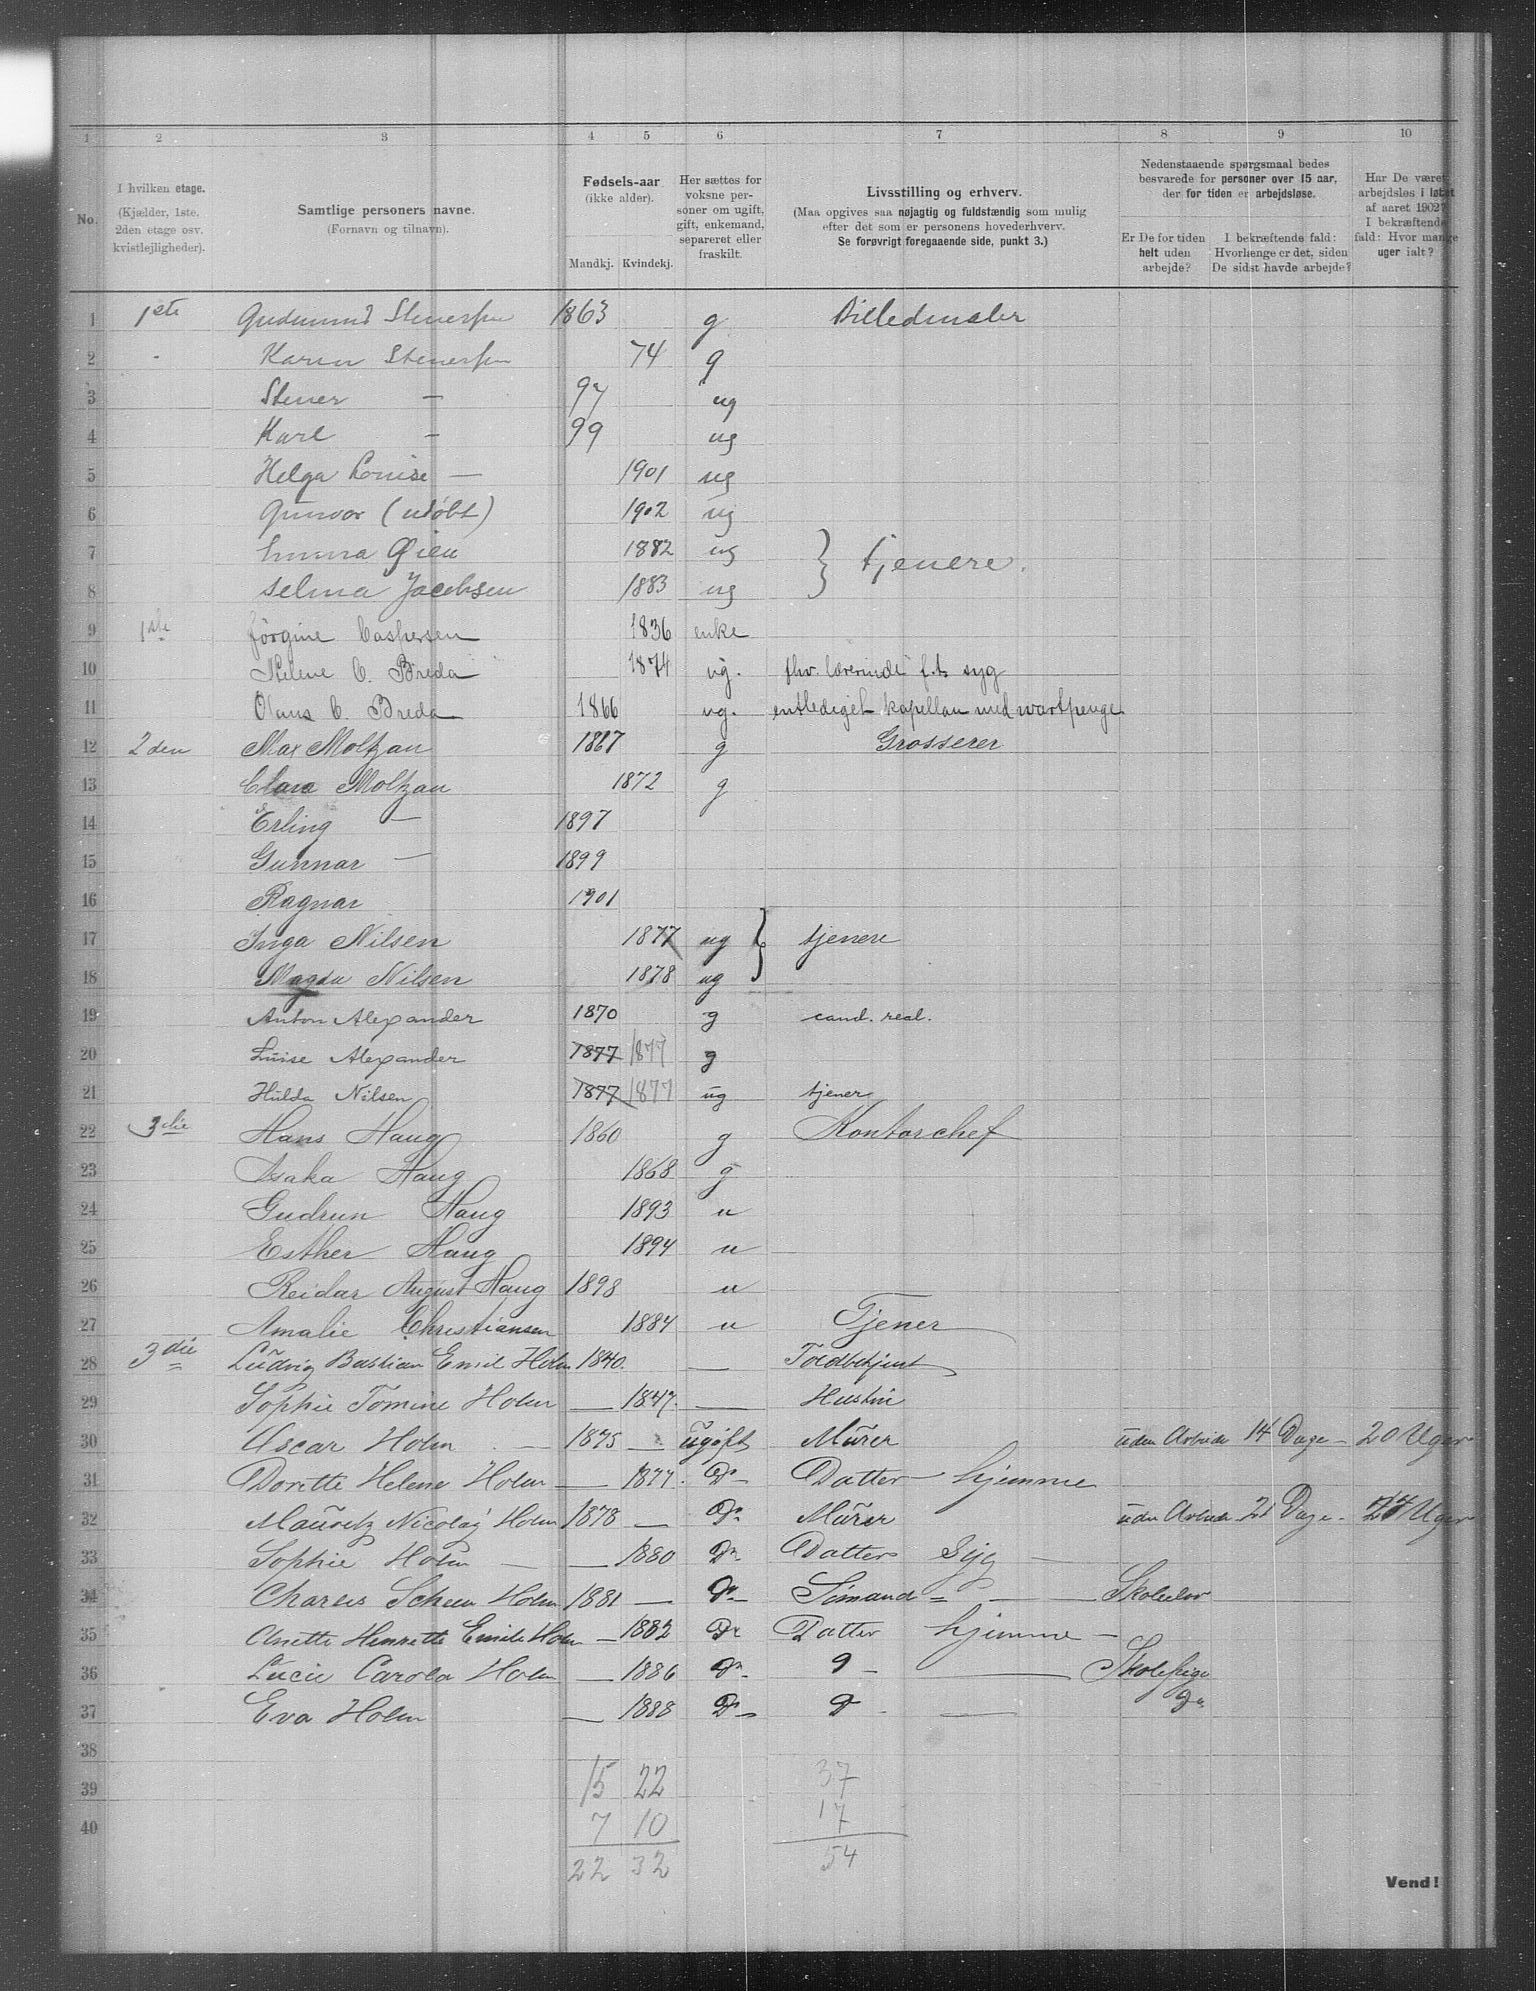 1 2 3 4 5 6 7 8 9 10
No.
I hvilken etage.
(Kjælder, 1ste.
2den etage osv.
kvistlejligheder).
Samtlige personers navne.
(Fornavn og tilnavn).
Fødsels-aar
(ikke alder).
Mandkj. Kvindekj.
Her sættes for
voksne per-
soner om ugift,
gift, enkemand,
separeret eller
fraskilt.
Livsstilling og erhverv.
(Maa opgives saa nøjagtig og fuldstændig som mulig
efter det som er personens hovederhverv.
Se forøvrigt foregaaende side, punkt 3.)
Nedenstaaende spørgsmaal bedes
besvarede for personer over 15 aar,
der for tiden er arbejdsløse.
Er De for tiden
helt uden
arbejde?
I bekræftende fald:
Hvorlænge er det, siden
De sidst havde arbejde?
Har De været
arbejdsløs i løbet
af aaret 1902?
I bekræftende
fald: Hvor mange
uger ialt?
1 1ste Gudmund Stenersen 1863 g Billedmaler
2 - Karen Stenersen 74 g
3 Stener — 97 ug
4 Karl — 99 ug
5 Helga Louise — 1901 ug
6 Gunvor (udøbt) 1902 ug
7 Emma Øien 1882 ug } tjenere.
8 Selma Jacobsen 1883 ug
9 1ste Jörgine Caspersen 1836 enke
10 Helene C. Breda 1874 ug. fhv. lærerinde f.t. syg
11 Olaus C. Breda 1866 ug. entlediget kapellan med vartpenge
12 2den Max Moltzau 1867 g Grosserer
13 Clara Moltzau 1872 g
14 Erling — 1897
15 Gunnar — 1899
16 Ragnar 1901
17 Inga Nilsen 1877 ug } tjenere
18 Magda Nilsen 1878 ug
19 Anton Alexander 1870 g cand. real.
20 Luise Alexander 1877 1877 g
21 Hulda Nilsen 1877 1877 ug tjener
22 3die Hans Haug 1860 g Kontorchef
23 Asaka Haug 1868 g
24 Gudrun Haug 1893 u
25 Esther Haug 1894 u
26 Reidar August Haug 1898 u
27 Amalie Christiansen 1884 u Tjener
28 3die Ludvig Bastian Emil Holm 1840. — Toldbetjent
29 Sophie Tomine Holm — 1847. — Hustru
30 Oscar Holm — 1875 — ugift Mürer uden Arbeide 14 Dage — 20 Uger
31 Dorette Helene Holm — 1877. Do — Datter hjemme
32 Mauritz Nicolay Holm 1878 — Do Mürer uden Arbeide 21 Dage - Uger
33 Sophie Holm — — 1880 Do Datter Syg —
34 Charles Scheen Holm 1881 — Do — Sömand — Skoleelev
35 Anette Henrette Emilie Holm — 1882 Do Datter hjemme —
36 Lucie Carola Holm — 1886 Do D — — Skolepige
37 Eva Holm — 1888 Do — D - — Do
38
39 15 22 37
40 7 10 17
22 32 54
Vend!